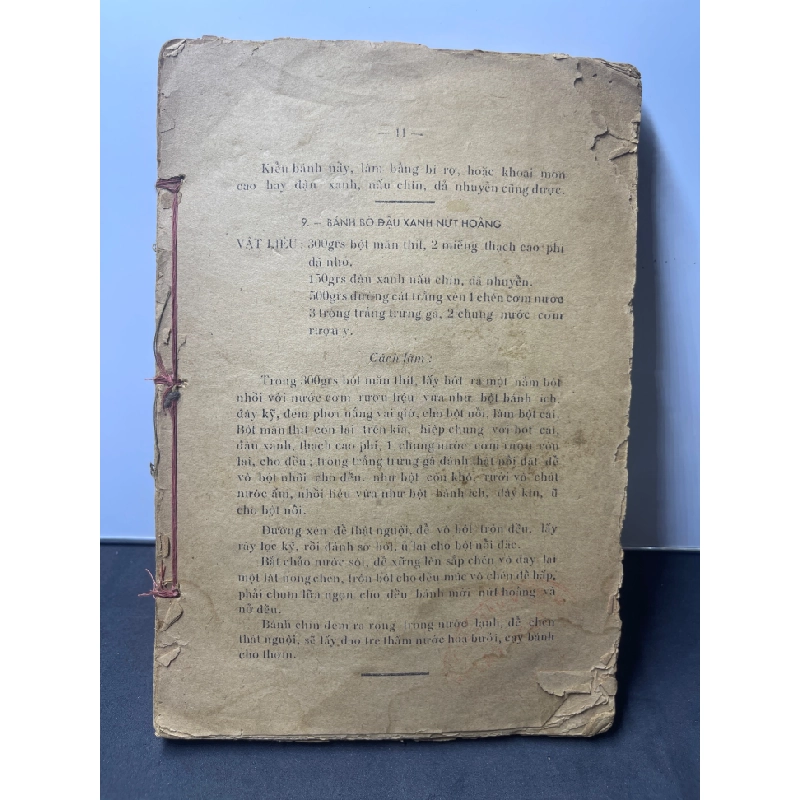 — 11 —
Kiểu bánh nầy, làm bằng bí rợ, hoặc khoai môn
cao hay đậu xanh, nấu chín, dả nhuyễn cũng được.
9. — BÁNH BÒ ĐẬU XANH NỨT HOẰNG
VẬT LIỆU: 300grs bột măn thít, 2 miếng thạch cao phi
dã nhỏ.
150grs đậu xanh nấu chín, dã nhuyễn.
500grs đường cát trắng xên 1 chén cơm nước
3 tròng trắng trứng gà, 2 chung nước cơm
rượu
Cách làm:
Trong 300grs bột măn thít, lấy bớt ra một nắm bột
nhồi với nước cơm rượu liệu vừa như bột bánh ích,
đậy kỹ, đem phơi nắng vài giờ, cho bột nổi, làm bột cái.
Bột măn thít còn lại trên kia, hiệp chung với bột cái,
đậu xanh, thạch cao phi, 1 chung nước cơm rượu còn
lại, cho đều; tròng trắng trứng gà đánh thật nổi đặt để
vô bột nhồi cho đều. như bột còn khô, rưới vô chút
nước ấm, nhồi liệu vừa như bột bánh ích, đậy kín, ủ
cho bột nổi.
Đường xên để thật nguội, đổ vô bột trộn đều, lấy
rây lọc kỹ, rồi đánh sơ bột, ủ lại cho bột nổi đặc.
Bắt chảo nước sôi, để xững lên sắp chén vô đậy lại
một lát nóng chén, trộn bột cho đều múc vô chén để hấp,
phải chụm lửa ngọn cho đều bánh mới nứt hoằng và
nở đều.
Bánh chín đem ra rộng trong nước lạnh, để chén
thật nguội, sẽ lấy dao tre thấm nước hoa bưởi, cạy bánh
cho thơm.